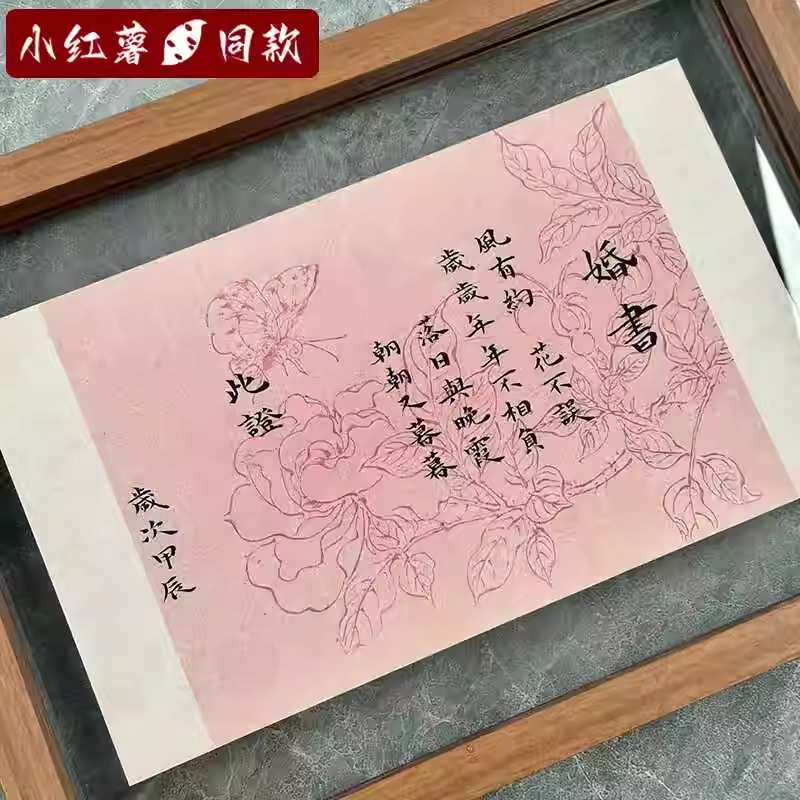 小红薯同款
婚書
風有約 花不誤
歲歲年年不相負
落日與晚霞
朝朝又暮暮
此證
歲次甲辰